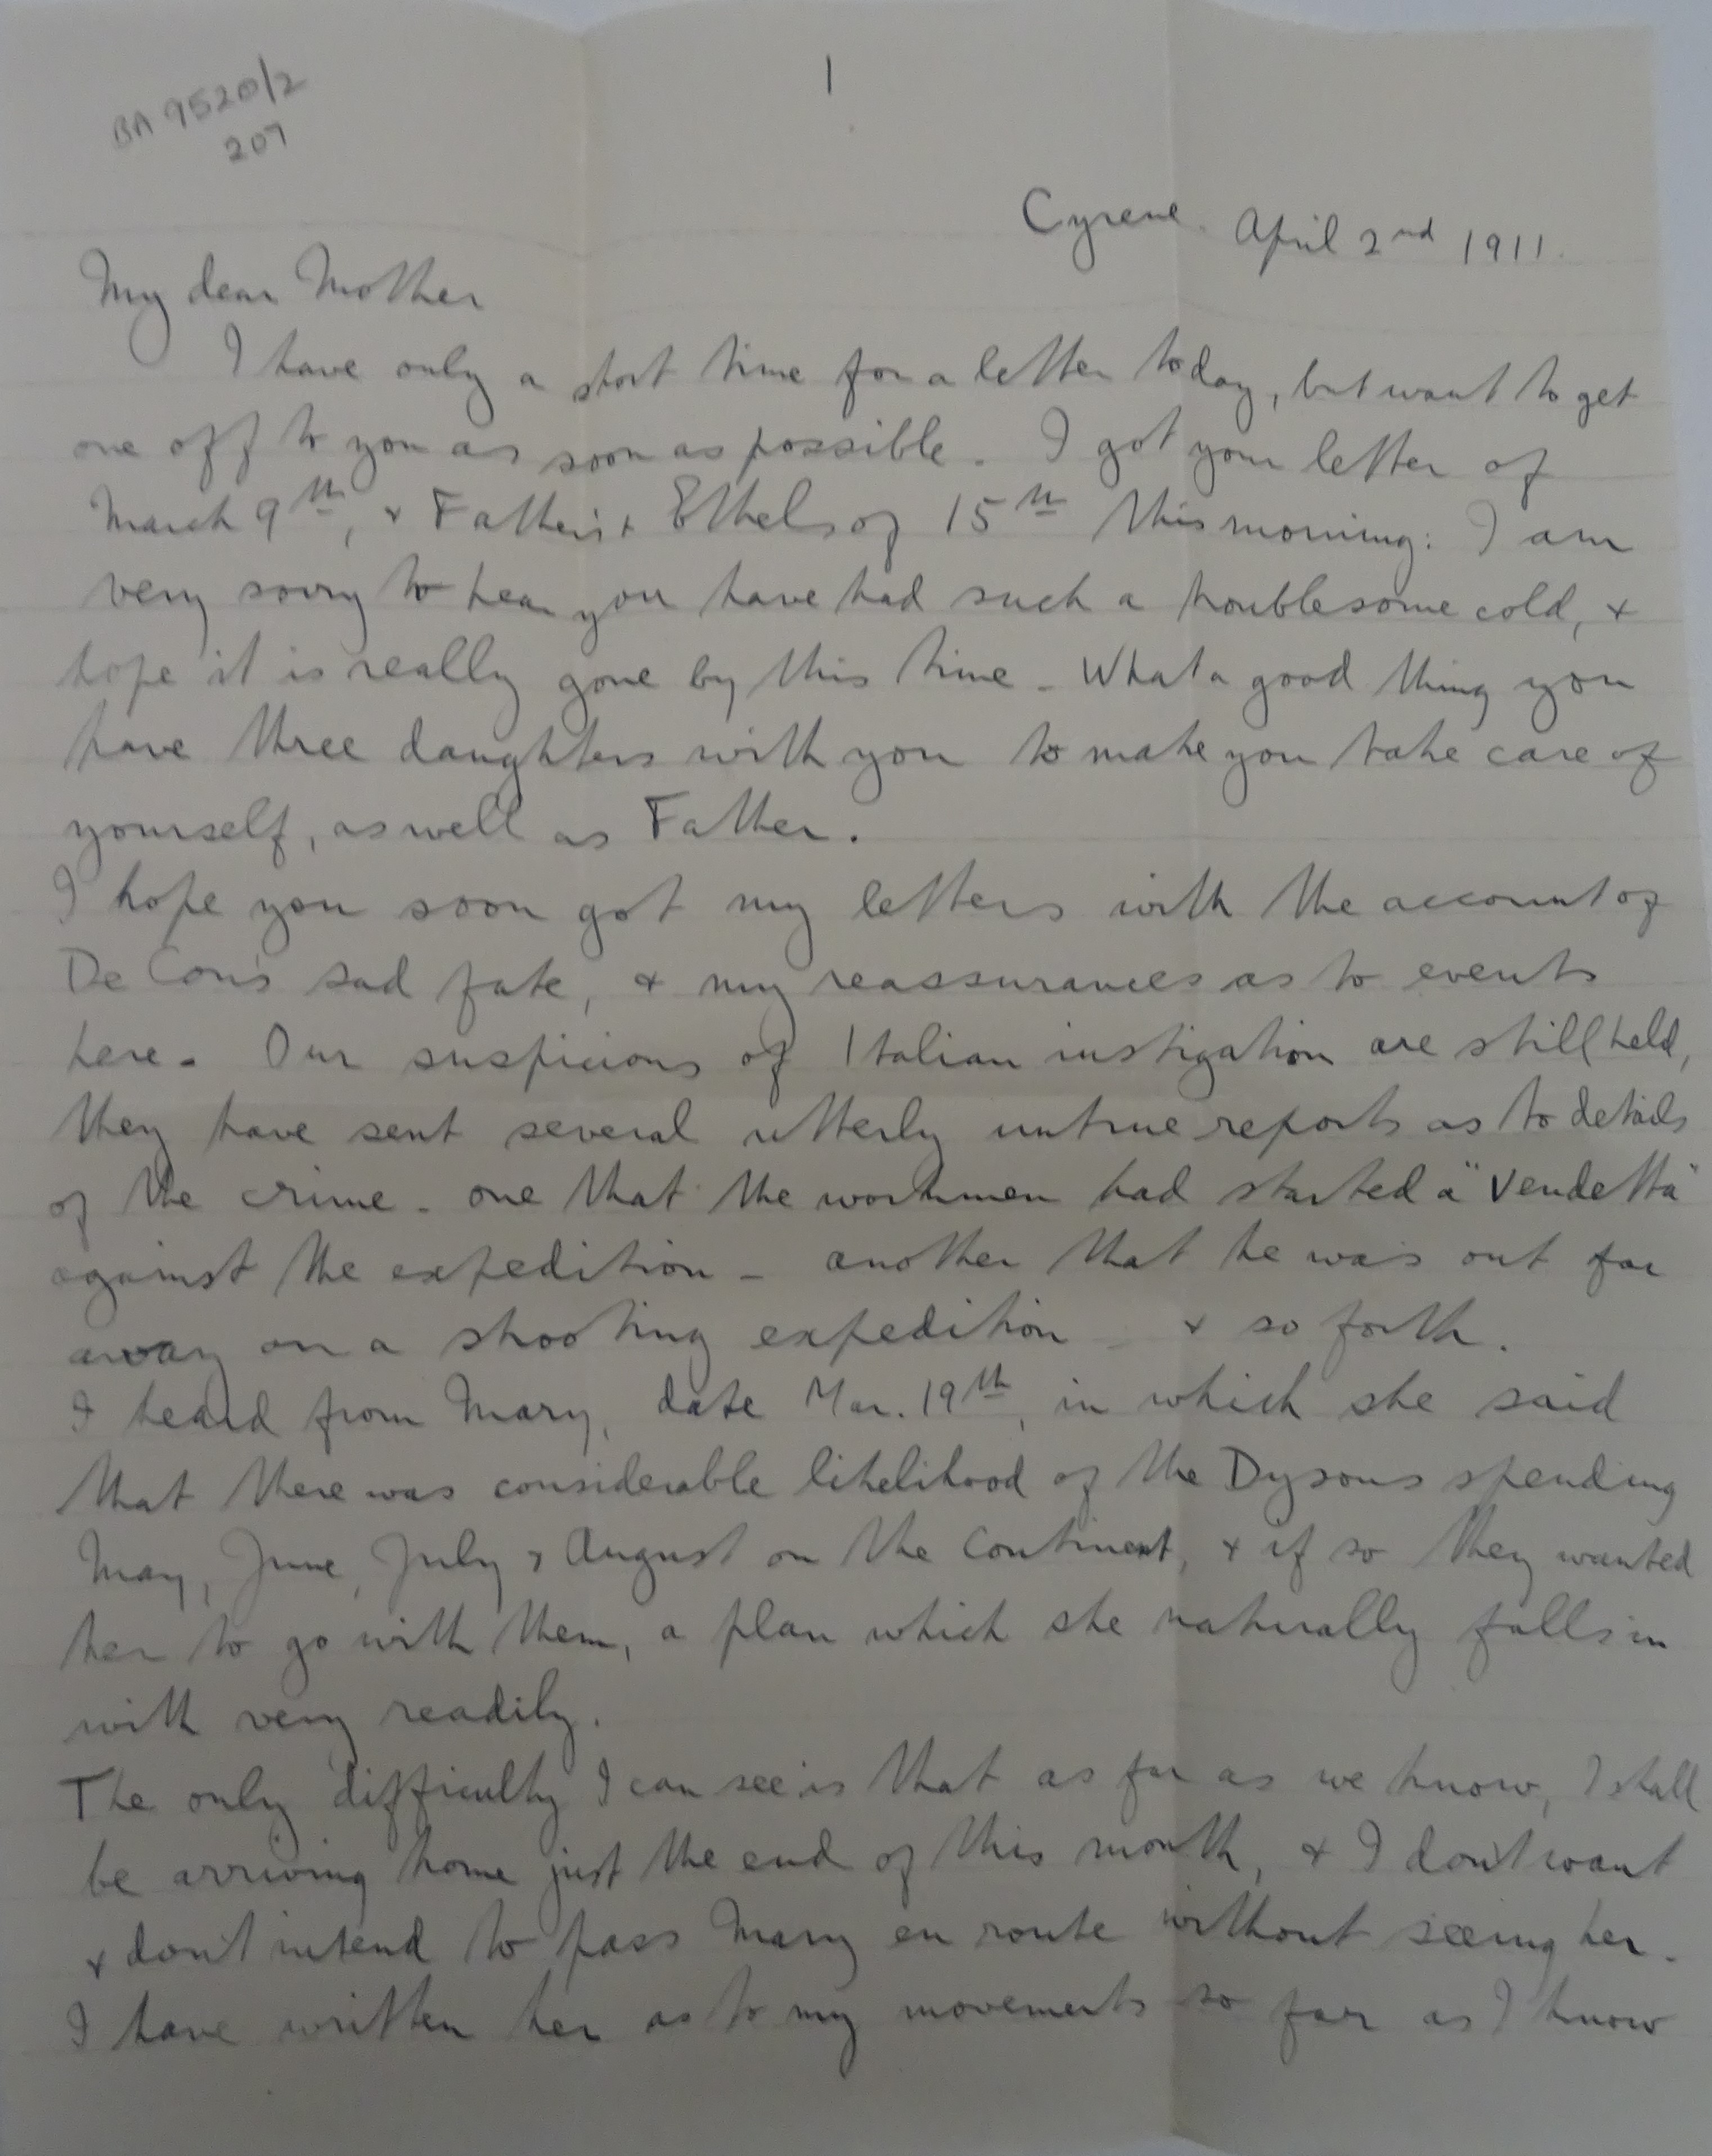 BA 9520/2
207
1
Cyrene. April 2nd 1911.
My dear Mother
I have only a short time for a letter today, but want to get
one off to you as soon as possible. I got your letter of
March 9th, & Father's & Ethel's of 15th this morning: I am
very sorry to hear you have had such a troublesome cold, &
hope it is really gone by this time - What a good thing you
have three daughters with you to make you take care of
yourself, as well as Father.
I hope you soon got my letters with the account of
De Cou's sad fate, & my reassurances as to events
here. Our suspicions of Italian instigation are still held,
they have sent several utterly untrue reports as to details
of the crime - one that the workmen had started a "vendetta"
against the expedition - another that he was out far
away on a shooting expedition - & so forth.
I heard from Mary, date Mar. 19th, in which she said
that there was considerable likelihood of the Dysons spending
May, June, July & August on the Continent, & if so they wanted
her to go with them, a plan which she naturally falls in
with very readily.
The only difficulty I can see is that as far as we know, I shall
be arriving home just the end of this month, & I don't want
& don't intend to pass Mary en route without seeing her.
I have written her as to my movements so far as I know